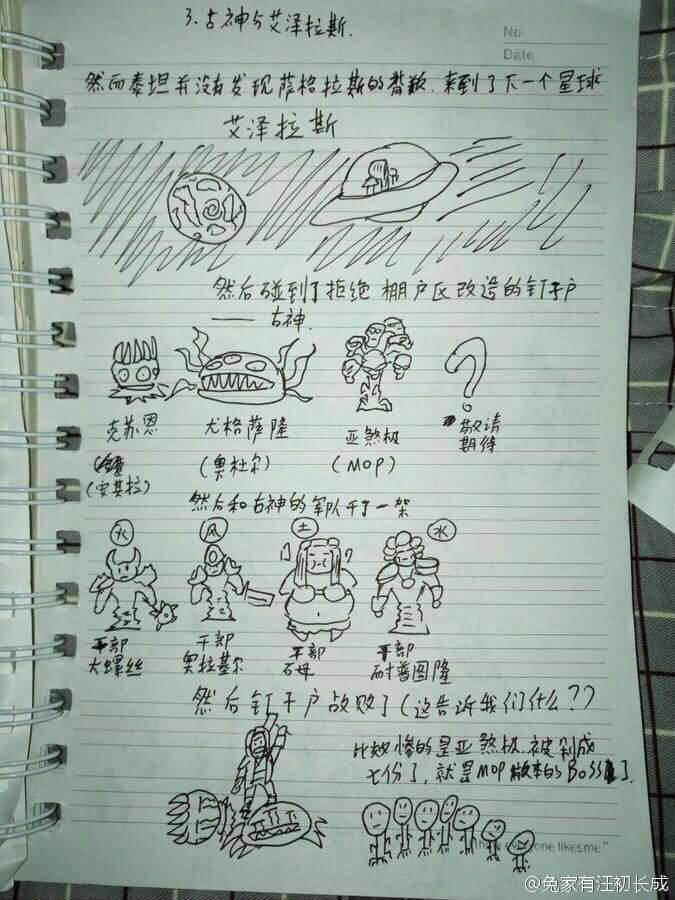 3.古神与艾泽拉斯.
No
Date
然而泰坦并没有发现萨格拉斯的背叛.来到了下一个星球
艾泽拉斯
然后碰到了拒绝棚户区改造的钉子户
——古神.
克苏恩 尤格萨隆 亚煞极 敬请
期待
(安其拉) (奥杜尔) (MOP)
然后和古神的军队干了一架
火 风 土 水
干部 干部 干部 干部
大螺丝 奥拉基尔 石母 耐普图隆
然后钉子户战败了(这告诉我们什么??
比较惨的是亚煞极.被剁成
七份了,就是MOP版本的BOSS了.
one likes me."
@兔家有汪初长成